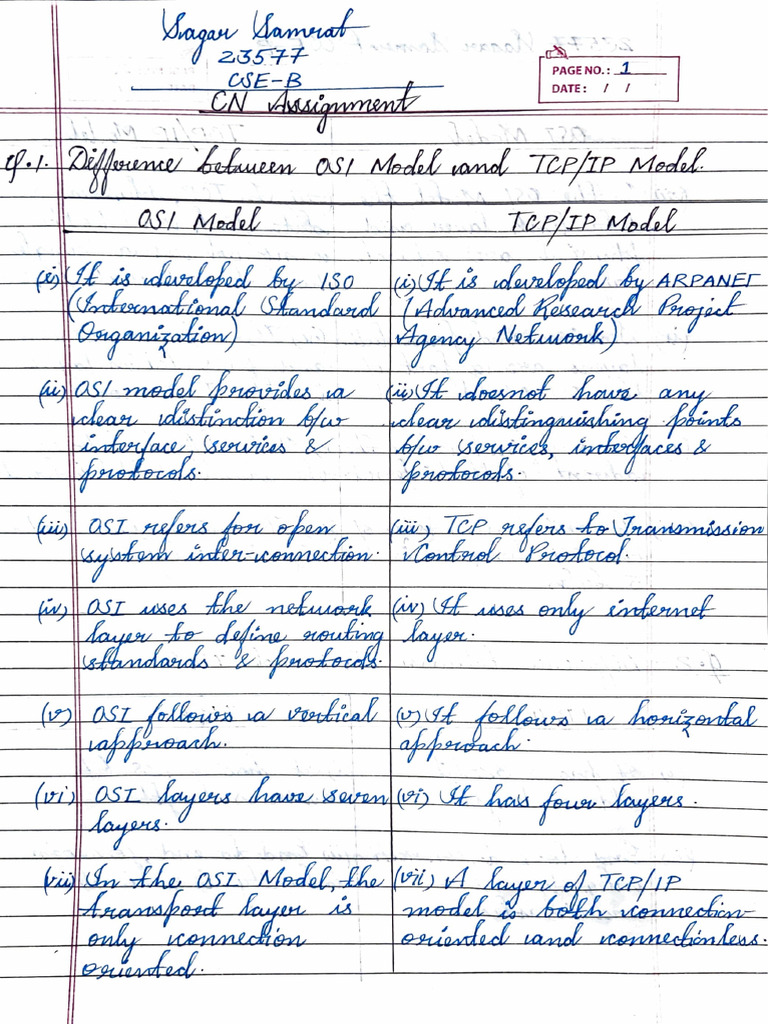 Sagar Samrat
23577
CSE-B
CN Assignment
PAGE NO.: 1
DATE: / /
Q.1. Difference between OSI Model and TCP/IP Model.
OSI Model
(i) It is developed by ISO
(International Standard
Organization)
(ii) OSI model provides a
clear distinction b/w
interface, services &
protocols.
(iii) OSI refers for open
system inter-connection.
(iv) OSI uses the network
layer to define routing
standards & protocols.
(v) OSI follows a vertical
approach.
(vi) OSI layers have seven
layers.
(vii) In the OSI Model, the
transport layer is
only connection
oriented.
TCP/IP Model
(i) It is developed by ARPANET
(Advanced Research Project
Agency Network)
(ii) It doesnot have any
clear distinguishing points
b/w services, interfaces &
protocols.
(iii) TCP refers to Transmission
Control Protocol.
(iv) It uses only internet
layer.
(v) It follows a horizontal
approach.
(vi) It has four layers.
(vii) A layer of TCP/IP
model is both connection-
oriented and connectionless.